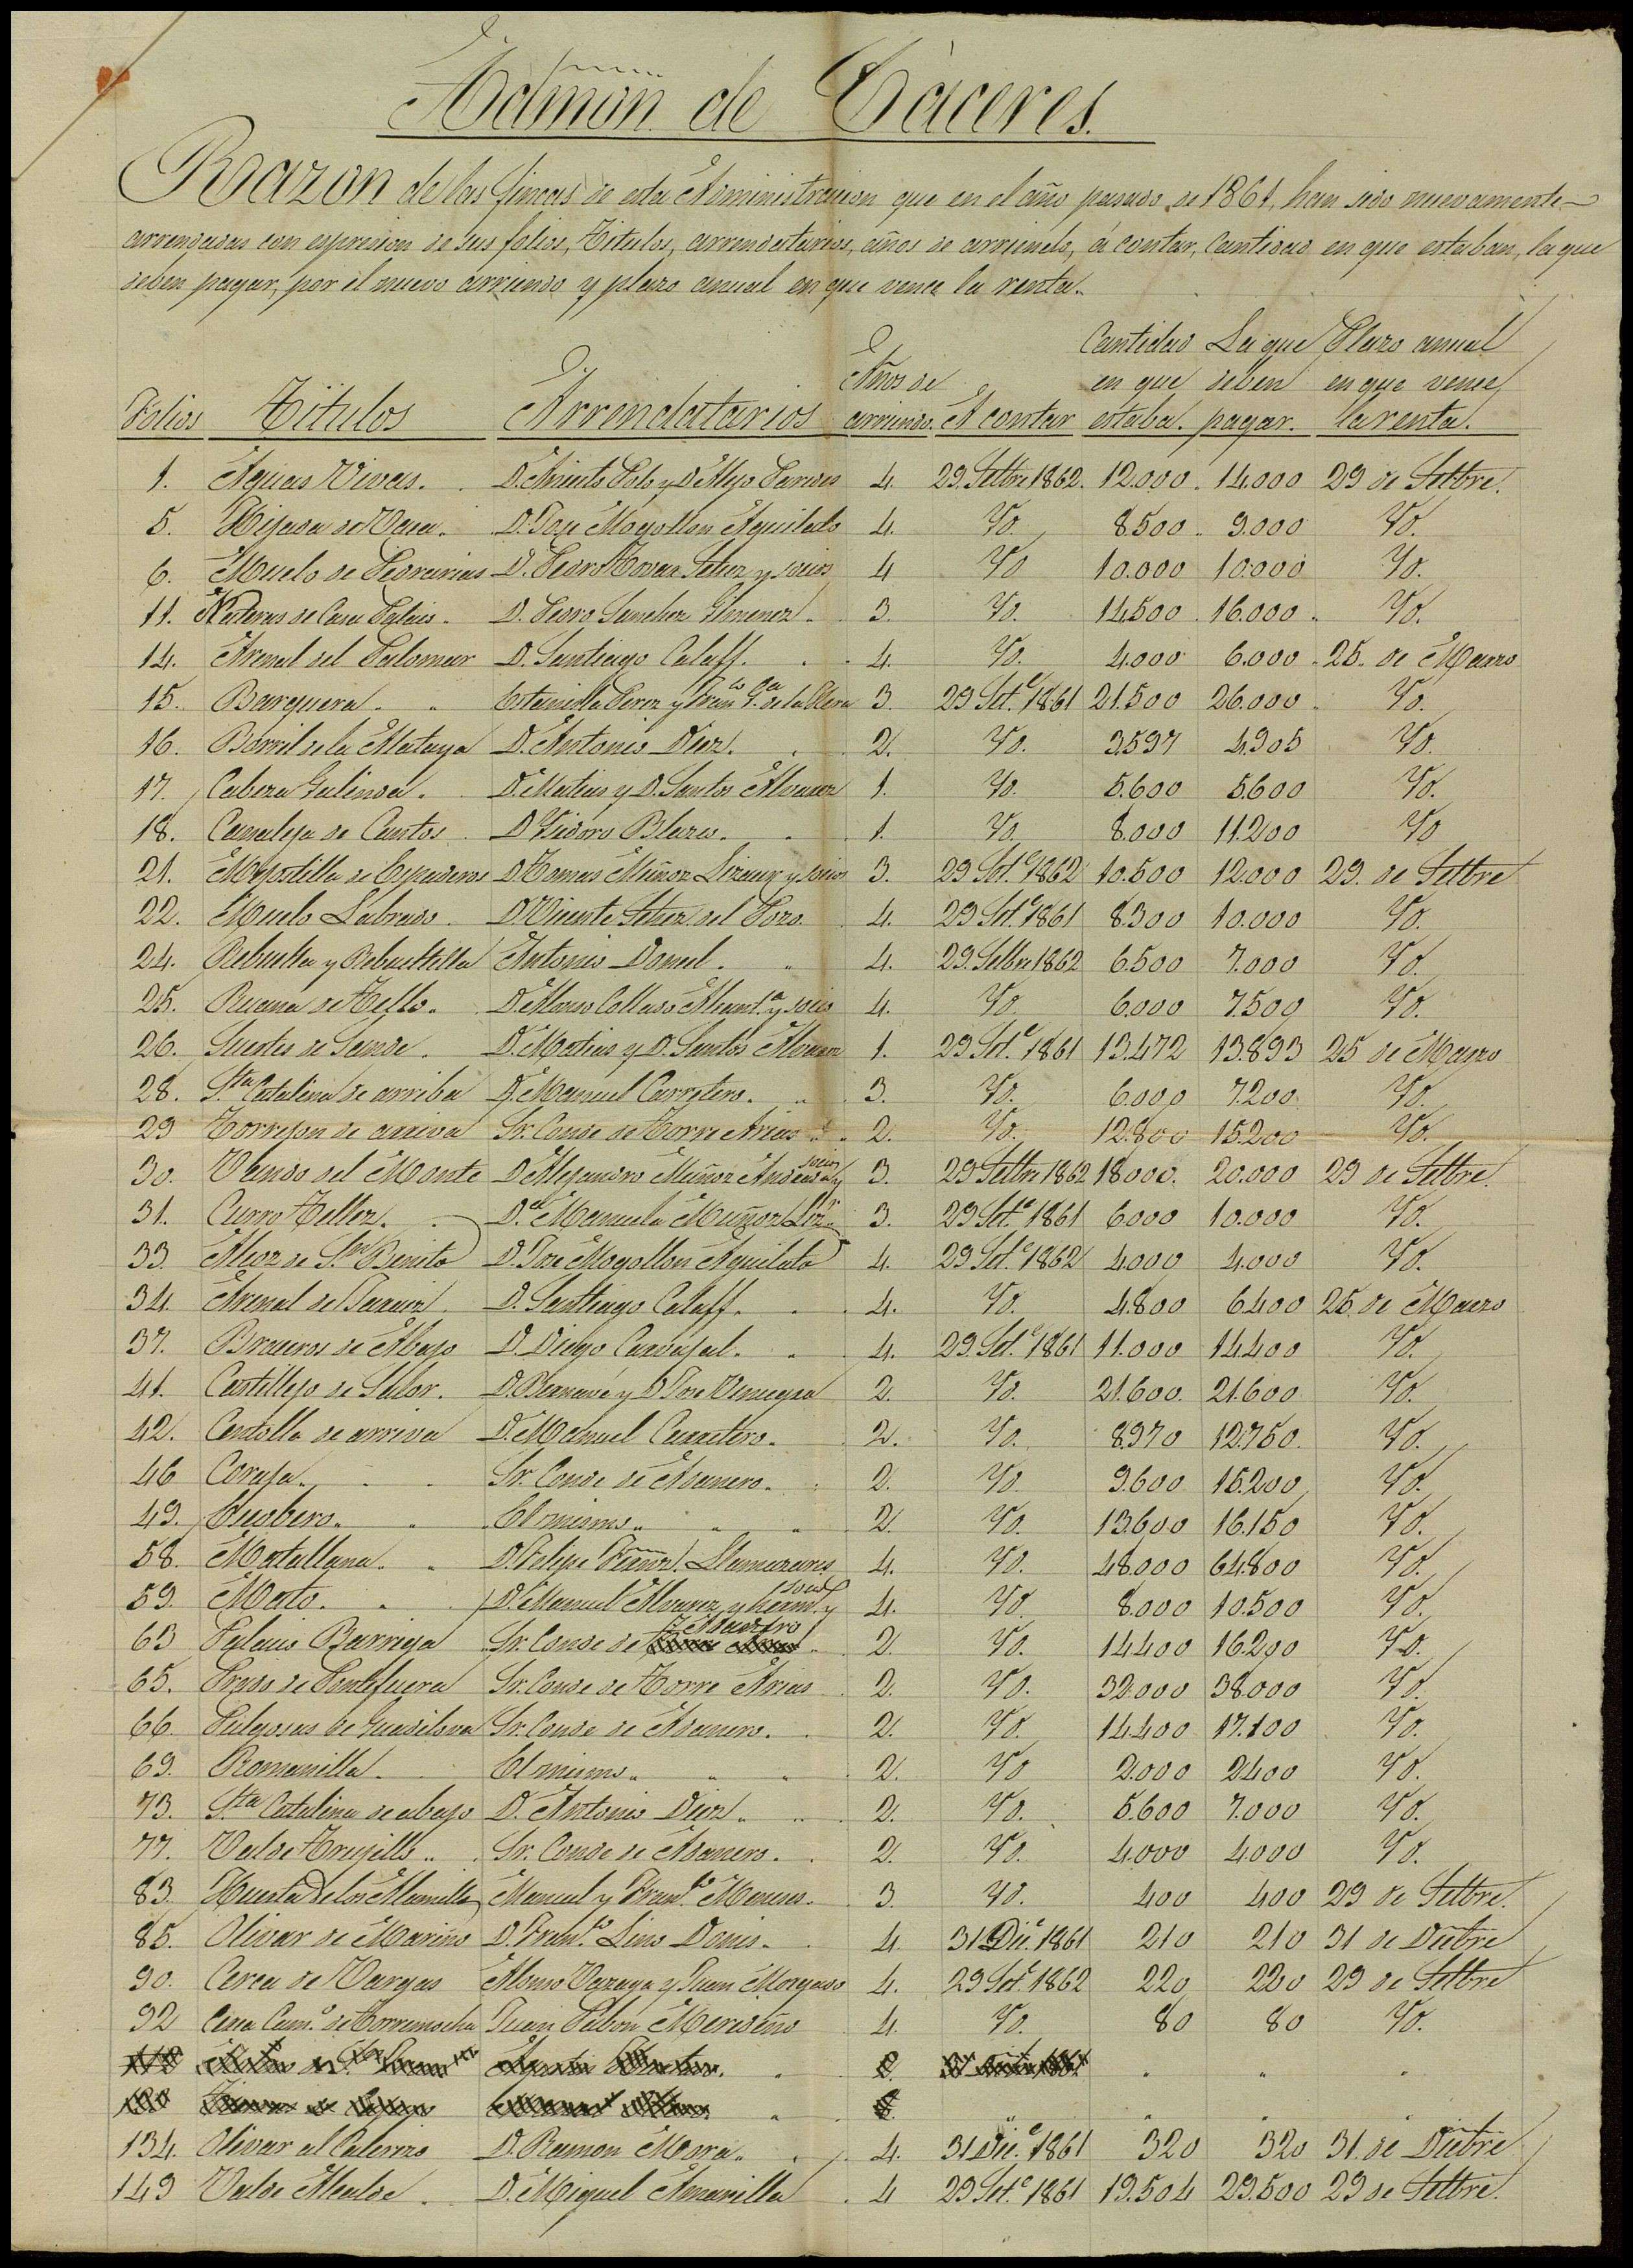 Admon. de Cáceres.
Razon de las fincas de esta Administracion que en el año pasado de 1861, han sido nuevamente
arrendadas con espresion de sus folios, Titulos, arrendatarios, años de arriendo, á contar, Cantidad en que estaban, la que
deben pagar, por el nuevo arriendo y plazo anual en que vence la renta.
Folios Titulos Arrendatarios Años de arriendo. A contar Cantidad en que estaba. La que deben pagar. Plazo anual en que vence la renta.
1. Aguas Vivas. D. Jacinto Polo y D. Alejo Paredes 4. 29. Setbre 1862. 12.000. 14.000 29 de Setbre.
5. Hijada de Vaca. D. Jose Mogollon Aguilato 4. Yd. 8.500 9.000 Yd.
6. Muelo de Pedrarias D. Pedro Tovar Schez y socios 4 Yd 10.000 10.000 Yd.
11. de Casa Palacio. D. Pedro Sanchez Gimenez. 3. Yd. 14.500. 16.000. Yd.
14. Arenal del Palomar D. Santiago Calaff. 4. Yd. 4.000 6.000 25. de Marzo
15. Barquera. Estanisla Perez y Fran.co de la Plera 3. 29 Set.e 1861 21.500 26.000 Yd.
16. Barril de la Atalaya D. Antonio Diez. 2. Yd. 3.597 4.905 Yd.
17. Cabeza Galinda. D. Matias y D. Santos Alvarez 1. Yd. 5.600 5.600 Yd.
18. Canaleja de Cantos D. Ysidoro Blazco. 1. Yd. 8.000 11.200 Yd
21. Mogostilla de Espaderos D. Tomas Muñoz Lizaur y socios 3. 29 Set.e 1862 10.500 12.000 29. de Setbre
22. Muelo Labrado D. Vicente Schez. del Pozo. 4. 29 Set.e 1861 8.300 10.000 Yd.
24. Rebuelta y Rebueltilla Antonio Doncel. 4. 29. Setbre 1862 6.500 7.000 Yd.
25. Rucana de Tello. D. Alonso Collazo Alcant.a y socio 4. Yd. 6.000 7.500 Yd.
26. Suertes de Sande. D. Matias y D. Santos Alvarez 1. 29 Set.e 1861 13.472 13.893 25 de Marzo
28. S.ta Catalina de arriba D. Manuel Carretero. 3. Yd. 6.000 7.200 Yd.
29 Torrejon de arriva Sr. Conde de Torre Arias 2. Yd. 12.800 15.200 Yd.
30. Vlendo del Monte D. Alejandro Muñoz Andrada y socios 3. 29 Setbre 1862 18.000. 20.000 29 de Setbre.
31. Curro Tellez. D.a Manuela Muñoz Liz.r 3. 29 Set.e 1861 6.000 10.000 Yd.
33. Alcor de S.n Benito D. Jose Mogollon Aguilato 4. 29 Set.e 1862 4.000 4.000 Yd.
34. Arenal de Paraiz D. Santiago Calaff. 4. Yd. 4.800 6.400 25. de Marzo
37. Broceros de Abajo D. Diego Carvajal. 4. 29. Set.e 1861 11.000 14.400 Yd.
41. Castillejo de Salor. D. Bernavé y D. Jose Venegas 2. Yd. 21.600. 21.600 Yd.
42. Centolla de arriva D. Manuel Carretero. 2. Yd. 8.970 12.750. Yd.
46 Coraja. Sr. Conde de Adanero. 2. Yd. 9.600 15.200 Yd.
49. El mismo. 2. Yd. 13.600 16.150 Yd.
58. Matallana. D. Felipe Fernz. Llamazares 4. Yd. 48.000 64.800 Yd.
59. Mato. D. Manuel Alvarez y herm.o y socios 4. Yd. 8.000 10.500 Yd.
63 Palacio Barriga Sr. Conde de Adanero 2. Yd. 14.400 16.200 Yd.
65. Prado de Pontefuera Sr. Conde de Torre Arias 2. Yd. 32.000 38.000 Yd.
66. Pulgosas de Guadiloba Sr. Conde de Adanero. 2. Yd. 14.400 17.100 Yd.
69. Romanilla. El mismo. 2. Yd 2.000 2.400 Yd.
73. S.ta Catalina de abajo D. Antonio Diez. 2. Yd. 5.600 7.000 Yd.
77. Valde Trujillo. Sr. Conde de Adanero. 2. Yd. 4.000 4.000 Yd.
83. Huerta de los Alamillos Manuel y Fran.co Meneses. 3. Yd. 400 400 29 de Setbre.
85. Olivar de Mariño D. Fran.co Lino Donis. 4. 31 Dic.e 1861 210 210 31 de Dicbre
90. Cerca de Vargas Alonso Vazaga y Juan Morgado 4. 29 Set.e 1862 220 220 29 de Setbre
92 Cerca Cam.o de Torremocha Juan Pabon Merideño 4. Yd. 80 80 Yd.
134. Olivar al Calerizo D. Ramon Mora. 4. 31 Dic.e 1861 320 320 31. de Dicbre
149 Valde Alcalde D. Miguel Amarilla 4 29 Set.e 1861 19.504 29.500 29 de Setbre.